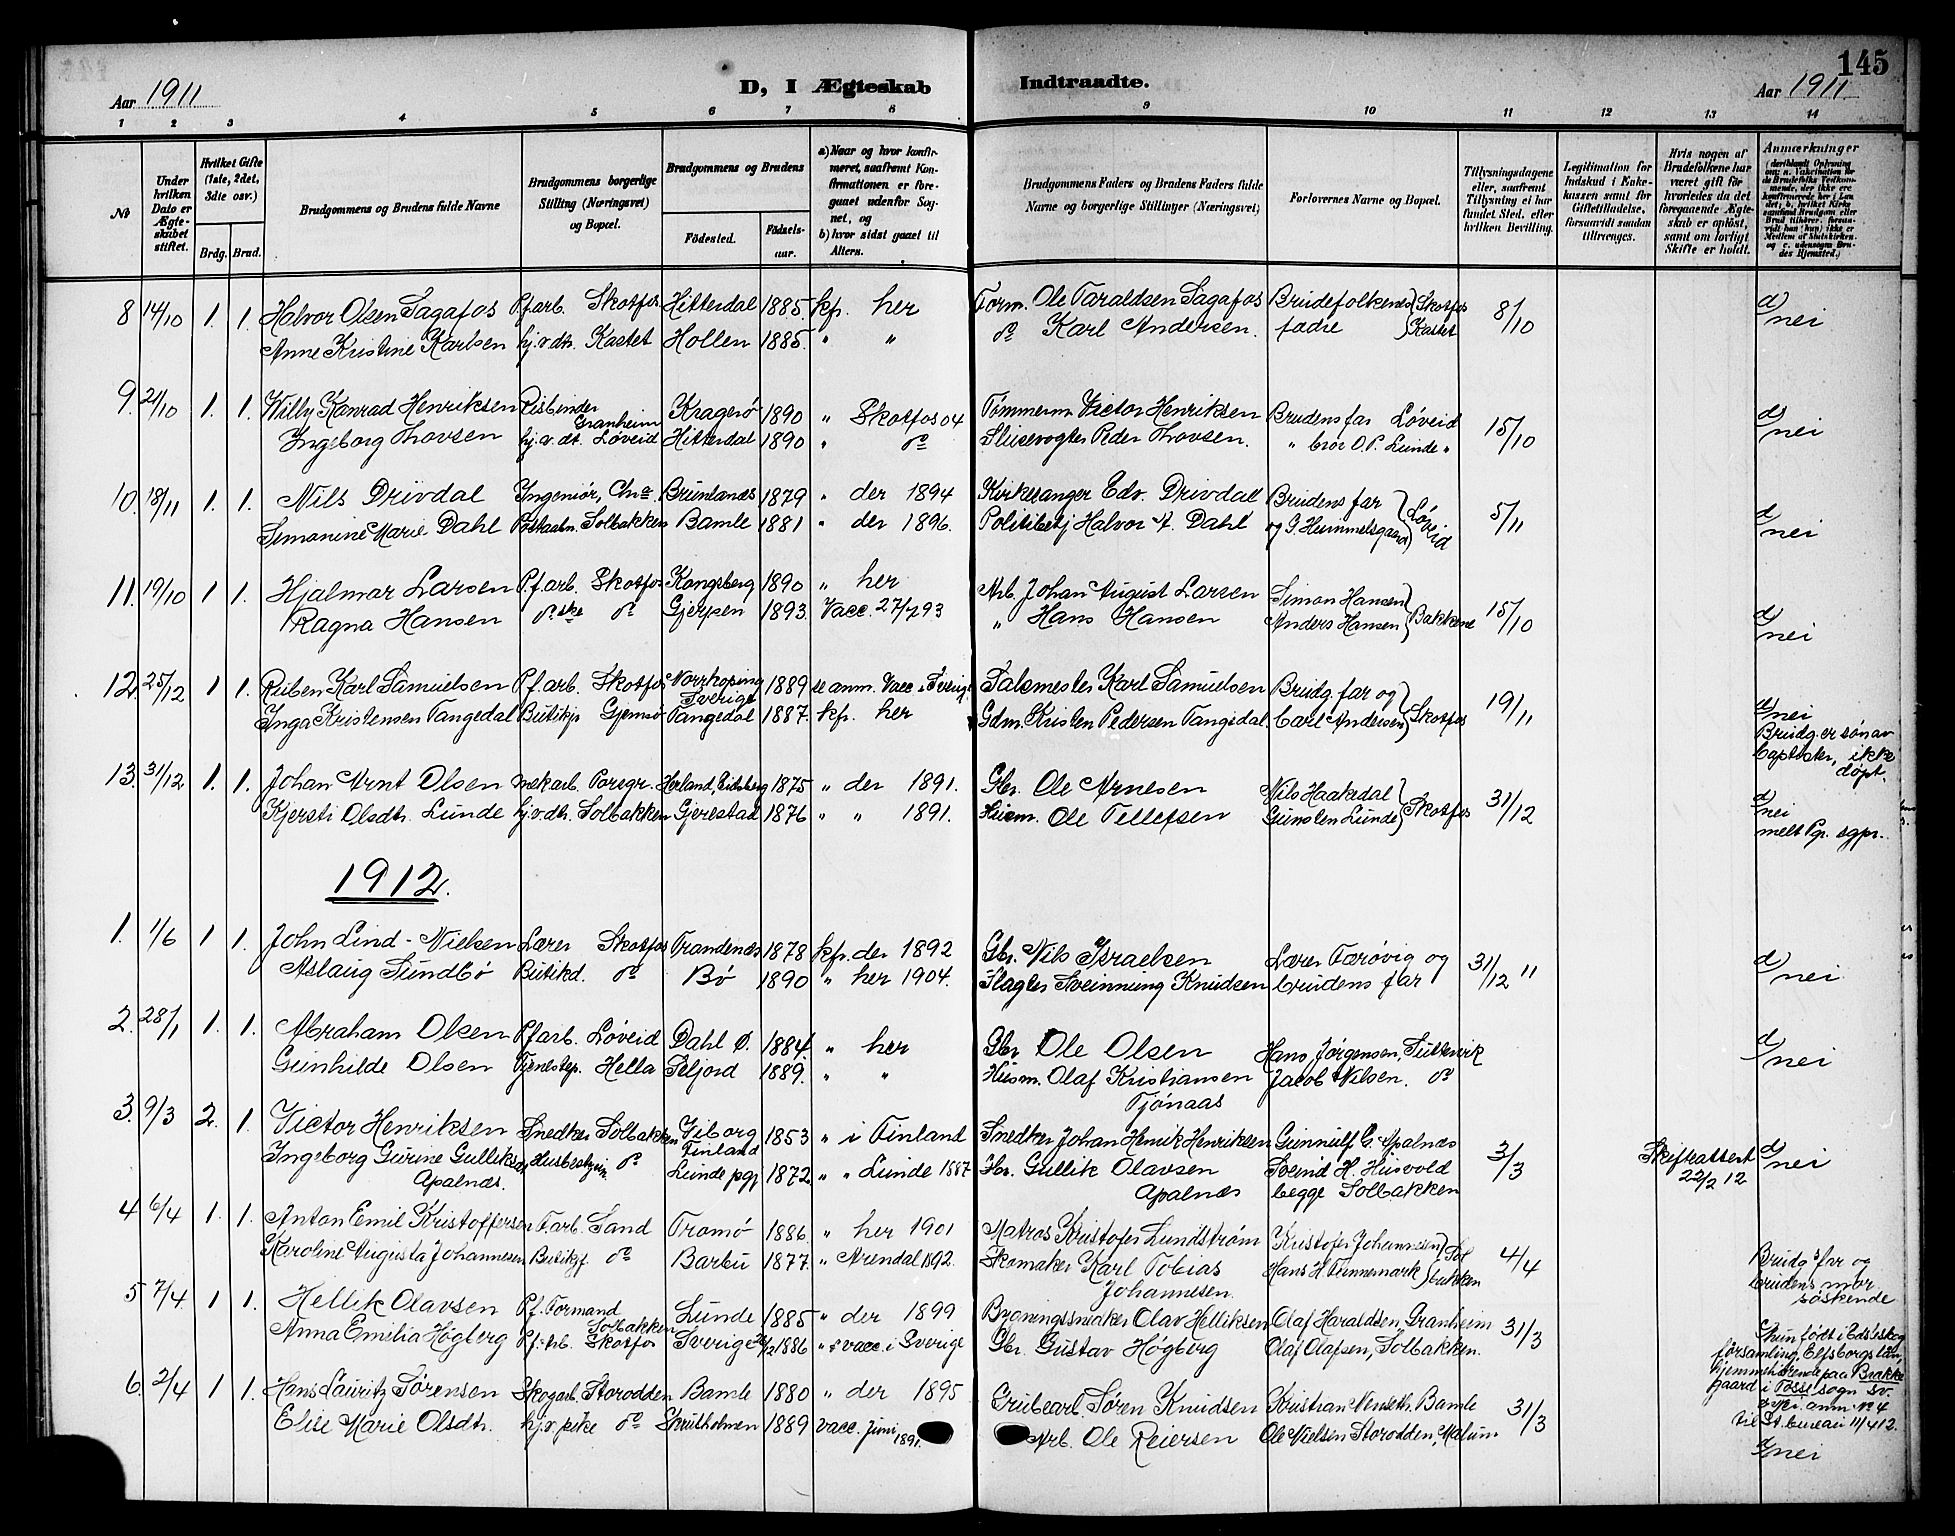 145
Aar 1911
D, I Ægteskab Indtraadte.
Aar 1911
1 2 3 4 5 6 7 8 9 10 11 12 13 14
No
Under hvilken Dato er Ægteskabet stiftet.
Hvilket Gifte (1ste, 2det, 3die osv.)
Brdg. Brud.
Brudgommens og Brudens fulde Navne
Brudgommens borgerlige Stilling (Næringsvei) og Bopæl.
Brudgommens og Brudens
Födested.
Födselsaar.
a) Naar og hvor konfirmeret, saafremt Konfirmationen er foregaaet udenfor Sognet, og
b) hvor sidst gaaet til Alters.
Brudgommens Faders og Brudens Faders fulde Navne og borgerlige Stillinger (Næringsvei)
Forlovernes Navne og Bopæl.
Tillysningsdagene eller, saafremt Tillysning ei har fundet Sted, efter hvilken Bevilling.
Legitimation for Indskud i Enkekassen samt for Giftetilladelse, forsaavidt saadan tiltrænges.
Hvis nogen af Brudefolkene har været gift før hvorledes da det foregaaende Ægteskab er opløst, samt om lovligt Skifte er holdt.
Anmærkninger
8 14/10 1. 1. Halvor Olsen Sagafos Pf.arb. Skotfos Hitterdal 1885. kfr. her Form. Ole Taraldsen Sagafos Brudefolkenes Skotfos 8/10 d/nei
Anne Kristine Karlsen hj.v.dtr. Kastet Hollen 1885. " " do Karl Andersen. fædre Kastet
9. 21/10 1. 1. Willy Konrad Henriksen Risbinder Granheim Kragerö 1890 " Skotfos 04 Tömmerm. Victor Henriksen Brudens far Løveid 15/10 d/nei
Ingeborg Thovsen hj.v.dt. Løveid Hitterdal 1890 " do Slusevogter Peder Thovsen. " bror O.P. Lunde "
10. 18/11 1. 1. Nils Drivdal Ingeniør, Chra. Brunlanes 1879 " der 1894 Kirkesanger Edv. Drivdal Brudens far 5/11 d/nei
Simonine Marie Dahl Postaabn. Solbakken Bamle 1881 " der 1896. Politibetj Halvor A. Dahl og G. Hummelsgaard Løveid
11. 19/10 1 1. Hjalmar Larsen Pf.arb. Skotfos Kongsberg 1890 " her Arb. Johan August Larsen Simon Hansen 15/10 d/nei
Ragna Hansen do ske do Gjerpen 1893. Vacc. 27/7 93 " Hans Hansen Anders Hansen Bakkene
12. 25/12 1 1. Ruben Karl Samuelsen Pf.arb. Skotfos Norrkoping Sverige 1889 se anm. Vacc i Sverige Salsmester Karl Samuelsen Brudg. far og 19/11 d/nei
Inga Kristensen Tangedal Butikp. Gjemsö Tangedal 1887. kfr. her Gdm. Kristen Pedersen Tangedal. Carl Andersen Skotfos
Brudg. er søn av baptister, ikke døpt.
13. 31/12 1. 1. Johan Arnt Olsen mekarb. Porsgr. Herland, Eidsberg 1875 " der 1891. Gbr. Ole Arnesen Nils Haakedal 31/12 d/nei
Kjersti Olsdtr. Lunde hj.v.dtr. Solbakken Gjerestad 1876 " " 1891. Husm. Ole Tellefsen Gunsten Lunde Skotfos
melt Pgr. sgpr.
1912.
1. 1/6 1 1. John Lind-Nielsen Lærer Skotfos Trondenæs 1878 kfr. der 1892 Gbr. Nils Israelsen Lærer Farövig og 31/12 11 d/nei
Aslaug Sundbö Butikd. do Bö 1890 " her 1904. Slagter Sveinung Knudsen brudens far
2. 28/1 1. 1. Abraham Olsen Pf.arb. Løveid Dahl D. 1884. " her Gbr Ole Olsen Hans Jörgensen, d/nei
Gunhilde Olsen Tjenestep. Hella Seljord 1889. " " Husm. Olaf Kristiansen Tjönaas Jacob Nilsen. do
3. 9/3 2. 1. Victor Henriksen Snedker Solbakken Viborg Finland 1853 " i Finland Snedker Johan Henrik Henriksen Gunnulf G. Apalnæs 3/3 Skifteattest 22/2 12 d/nei
Ingeborg Gurine Gulliksen Apalnæs. Husbestyrin do Lunde pgj 1872 " " Lunde 1887 Gbr. Gullik Olavsen Apalnæs Sveind H. Husvold begge Solbakken
4 6/4 1. 1. Anton Emil Kristoffersen Farb. Sand Tromö 1886. " her 1901 Matros Kristofer Lundström Kristofer Johannesen 4/4
Karoline Augusta Johannesen Butikf. do Barbu 1877. " Arendal 1892. Skomaker Karl Tobias Johannesen. Hans H. Tinnemark Solbakken
Brudg.s far og brudens mor søskende
5 7/4. 1 1. Hellik Olavsen Pf. Formand Solbakken Lunde 1885 " der 1899 Bygningssnedker Olav Helliksen Olaf Haraldsen, Granheim 31/3
Anna Emilia Högberg Pf. Arb. Skotfos Sverige 1886 " vacc. i Sverige Gbr. Gustav Högberg Olaf Olafsen, Solbakken.
hun født i Edsleskog församling, Elfsborgs län, hjemmehörende paa Brakke gaard i Tösse sogn Sv.
til St. bureau 11/4 12.
6. 2/4 1 1. Hans Lauritz Sörensen Skogarb. Storodden Bamle 1880 " der 1895 Grubearb. Sören Knudsen Kristian Nenseth. Bamle 31/3 d/nei
Elise Marie Olsdtr. hj.v. pike do 1889 vacc. Juni 1891. Arb. Ole Reiersen Ole Nielsen Storodden, Melum